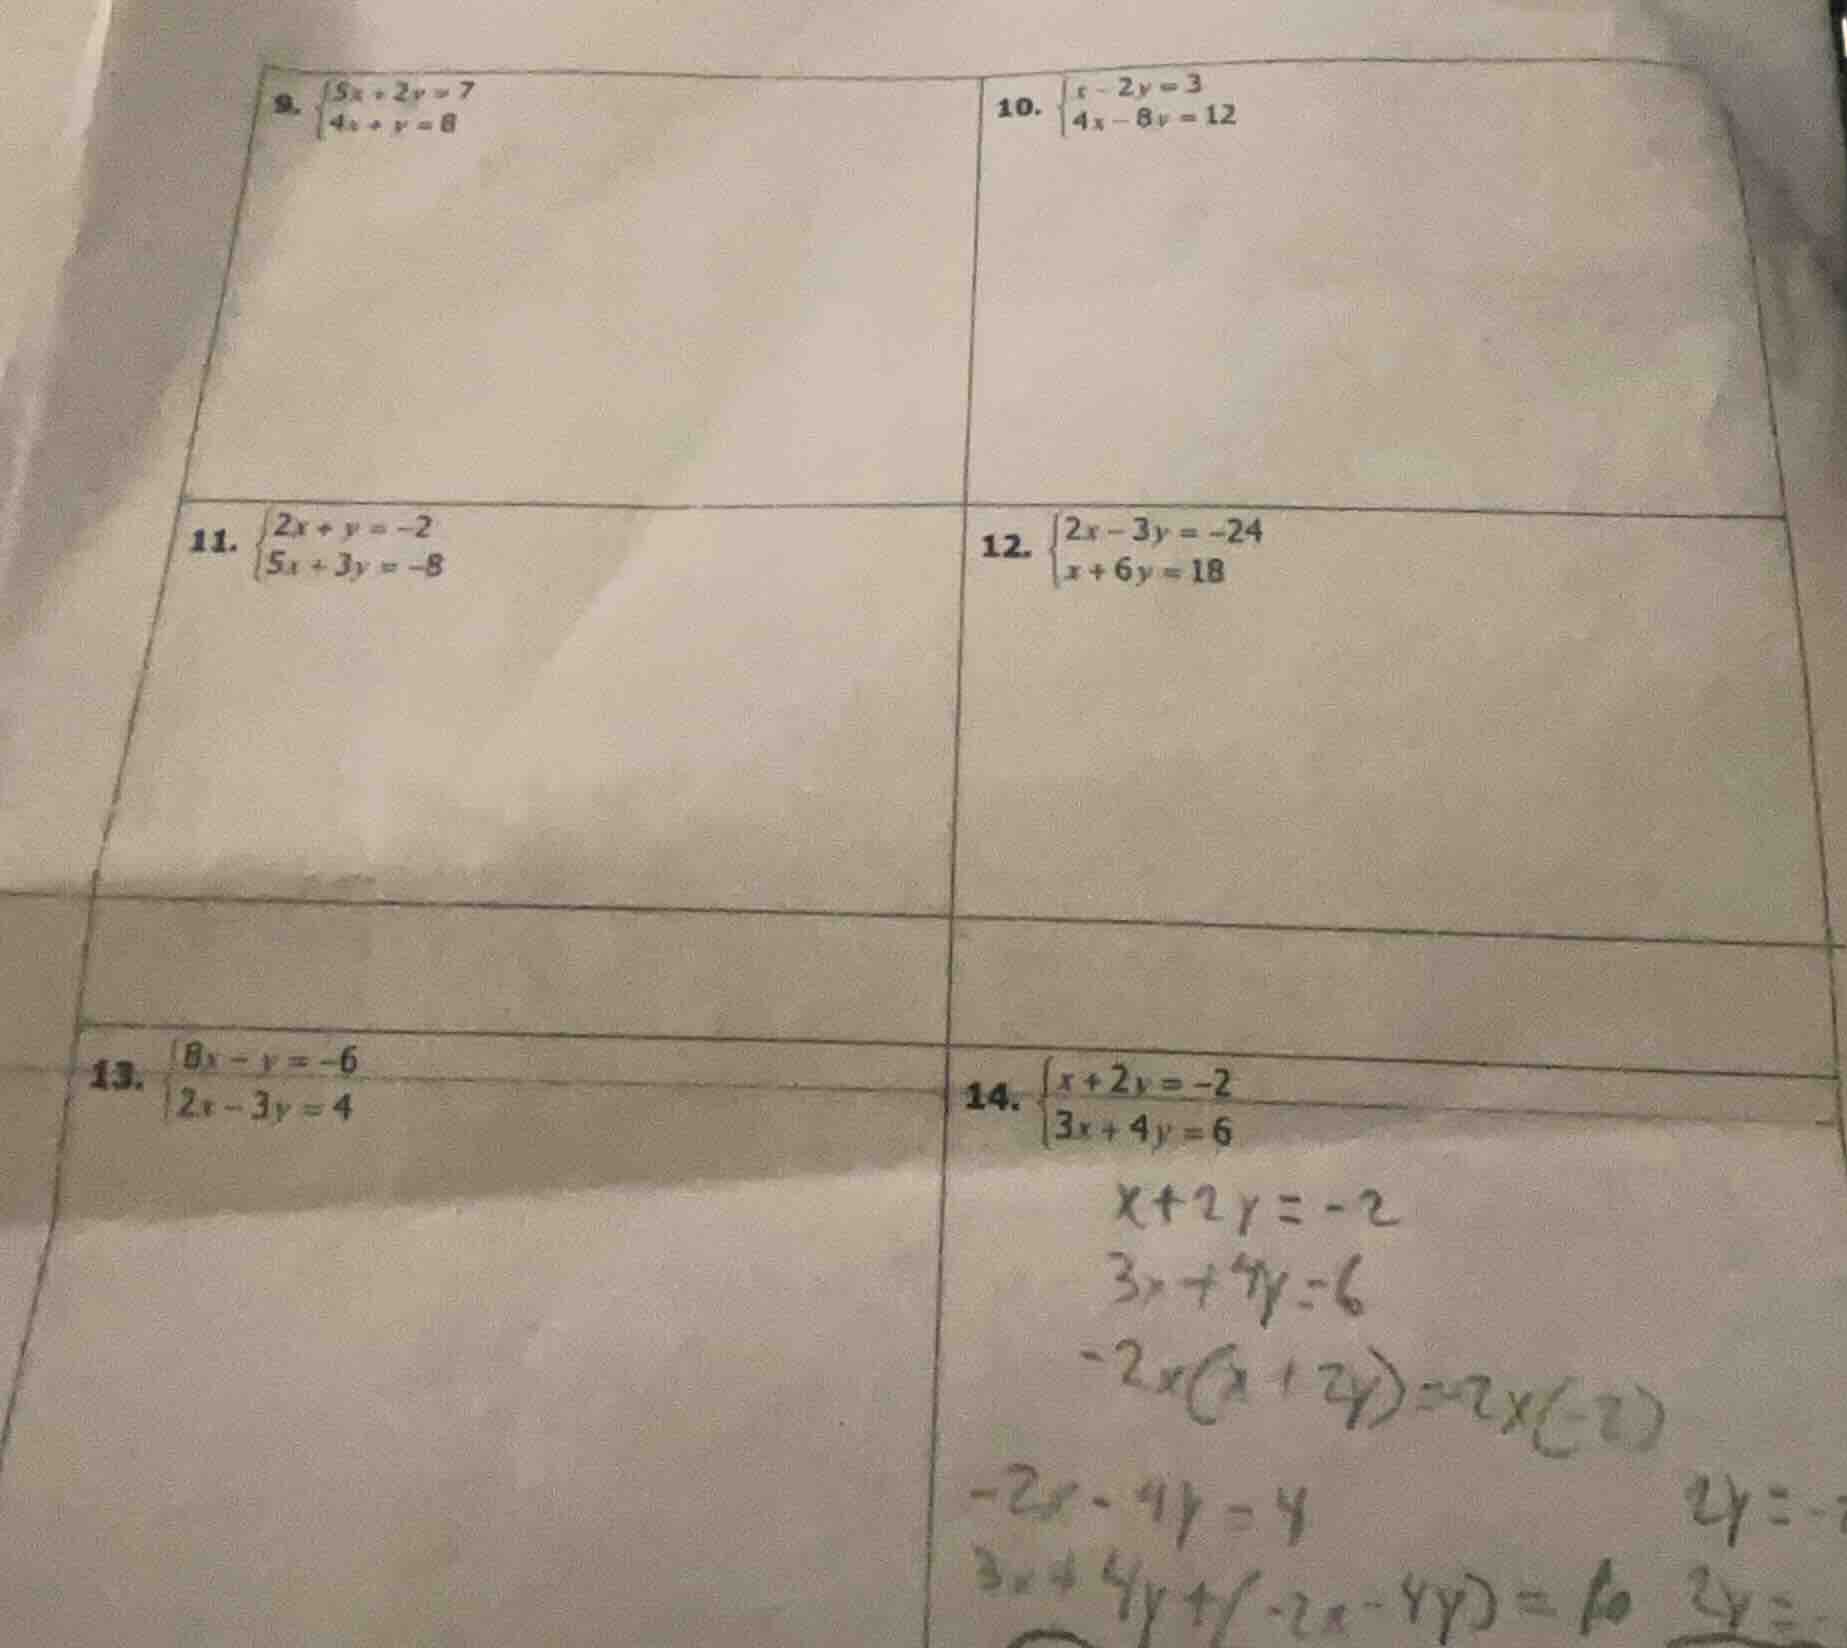 9. 5x + 2y = 7
4x + y = 8
10. x - 2y = 3
4x - 8y = 12
11. 2x + y = -2
5x + 3y = -8
12. 2x - 3y = -24
x + 6y = 18
13. 8x - y = -6
2x - 3y = 4
14. x + 2y = -2
3x + 4y = 6
x + 2y = -2
3x + 4y = 6
-2x(x + 2y) = -2x(-2)
-2x - 4y = 4
2y = -
3x + 4y + (-2x - 4y) = 10
2y = -